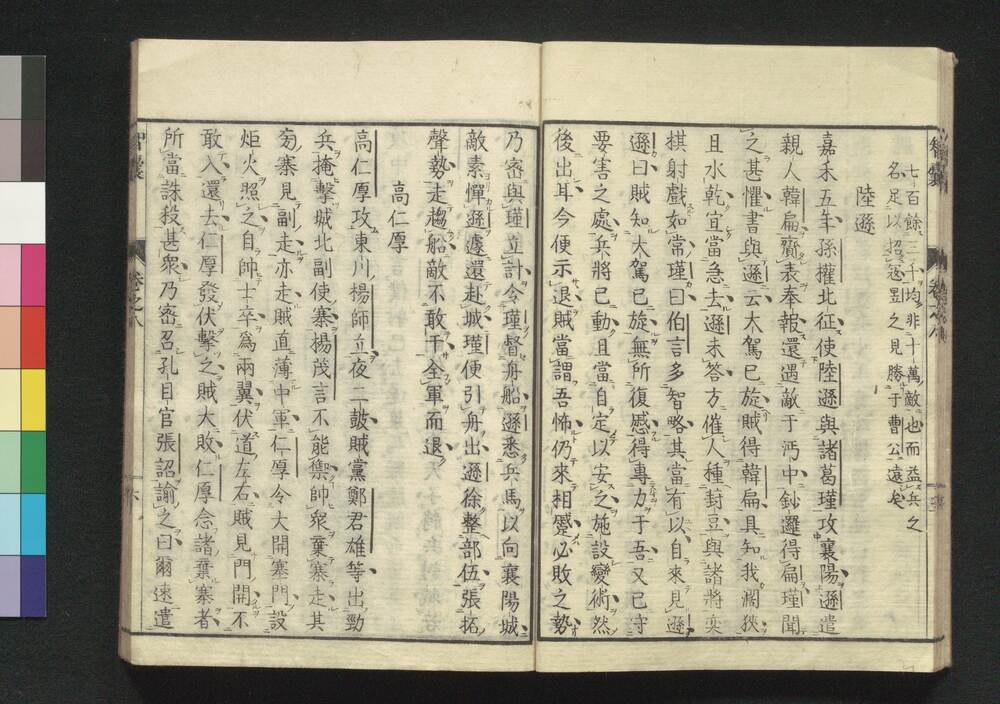 七百餘三千均非十萬敵也而益兵之
名足以招[...]昱之見勝于曹公遠矣
陸遜
嘉禾五年孫權北征使陸遜與諸葛瑾攻襄陽遜遣
親人韓扁齎表奉報還遇敵于沔中鈔邏得扁瑾聞
之甚懼書與遜云大駕已旋賊得韓扁具知我濶狹
且水乾宜當急去遜未答方催人種葑豆與諸將奕
棋射戲如常瑾曰伯言多智略其當有以自來見遜
遜曰賊知大駕已旋無所復慼得專力于吾又已守
要害之處兵將已動且當自定以安之施設變術然
後出耳今便示退賊當謂吾怖仍來相蹙必敗之勢
乃密與瑾立計令瑾督舟船遜悉兵馬以向襄陽城
敵素憚遜遽還赴城瑾便引舟出遜徐整部伍張拓
聲勢走趨船敵不敢干全軍而退
高仁厚
高仁厚攻東川楊師立夜二鼓賊黨鄭君雄等出勁
兵掩擊城北副使寨楊茂言不能禦帥衆棄寨走其
旁寨見副走亦走賊直薄中軍仁厚令大開寨門設
炬火照之自帥士卒爲兩翼伏道左右賊見門開不
敢入還去仁厚發伏擊之賊大敗仁厚念諸棄寨者
所當誅殺甚衆乃密召孔目官張詔諭之曰爾速遣
智囊
卷之八
六